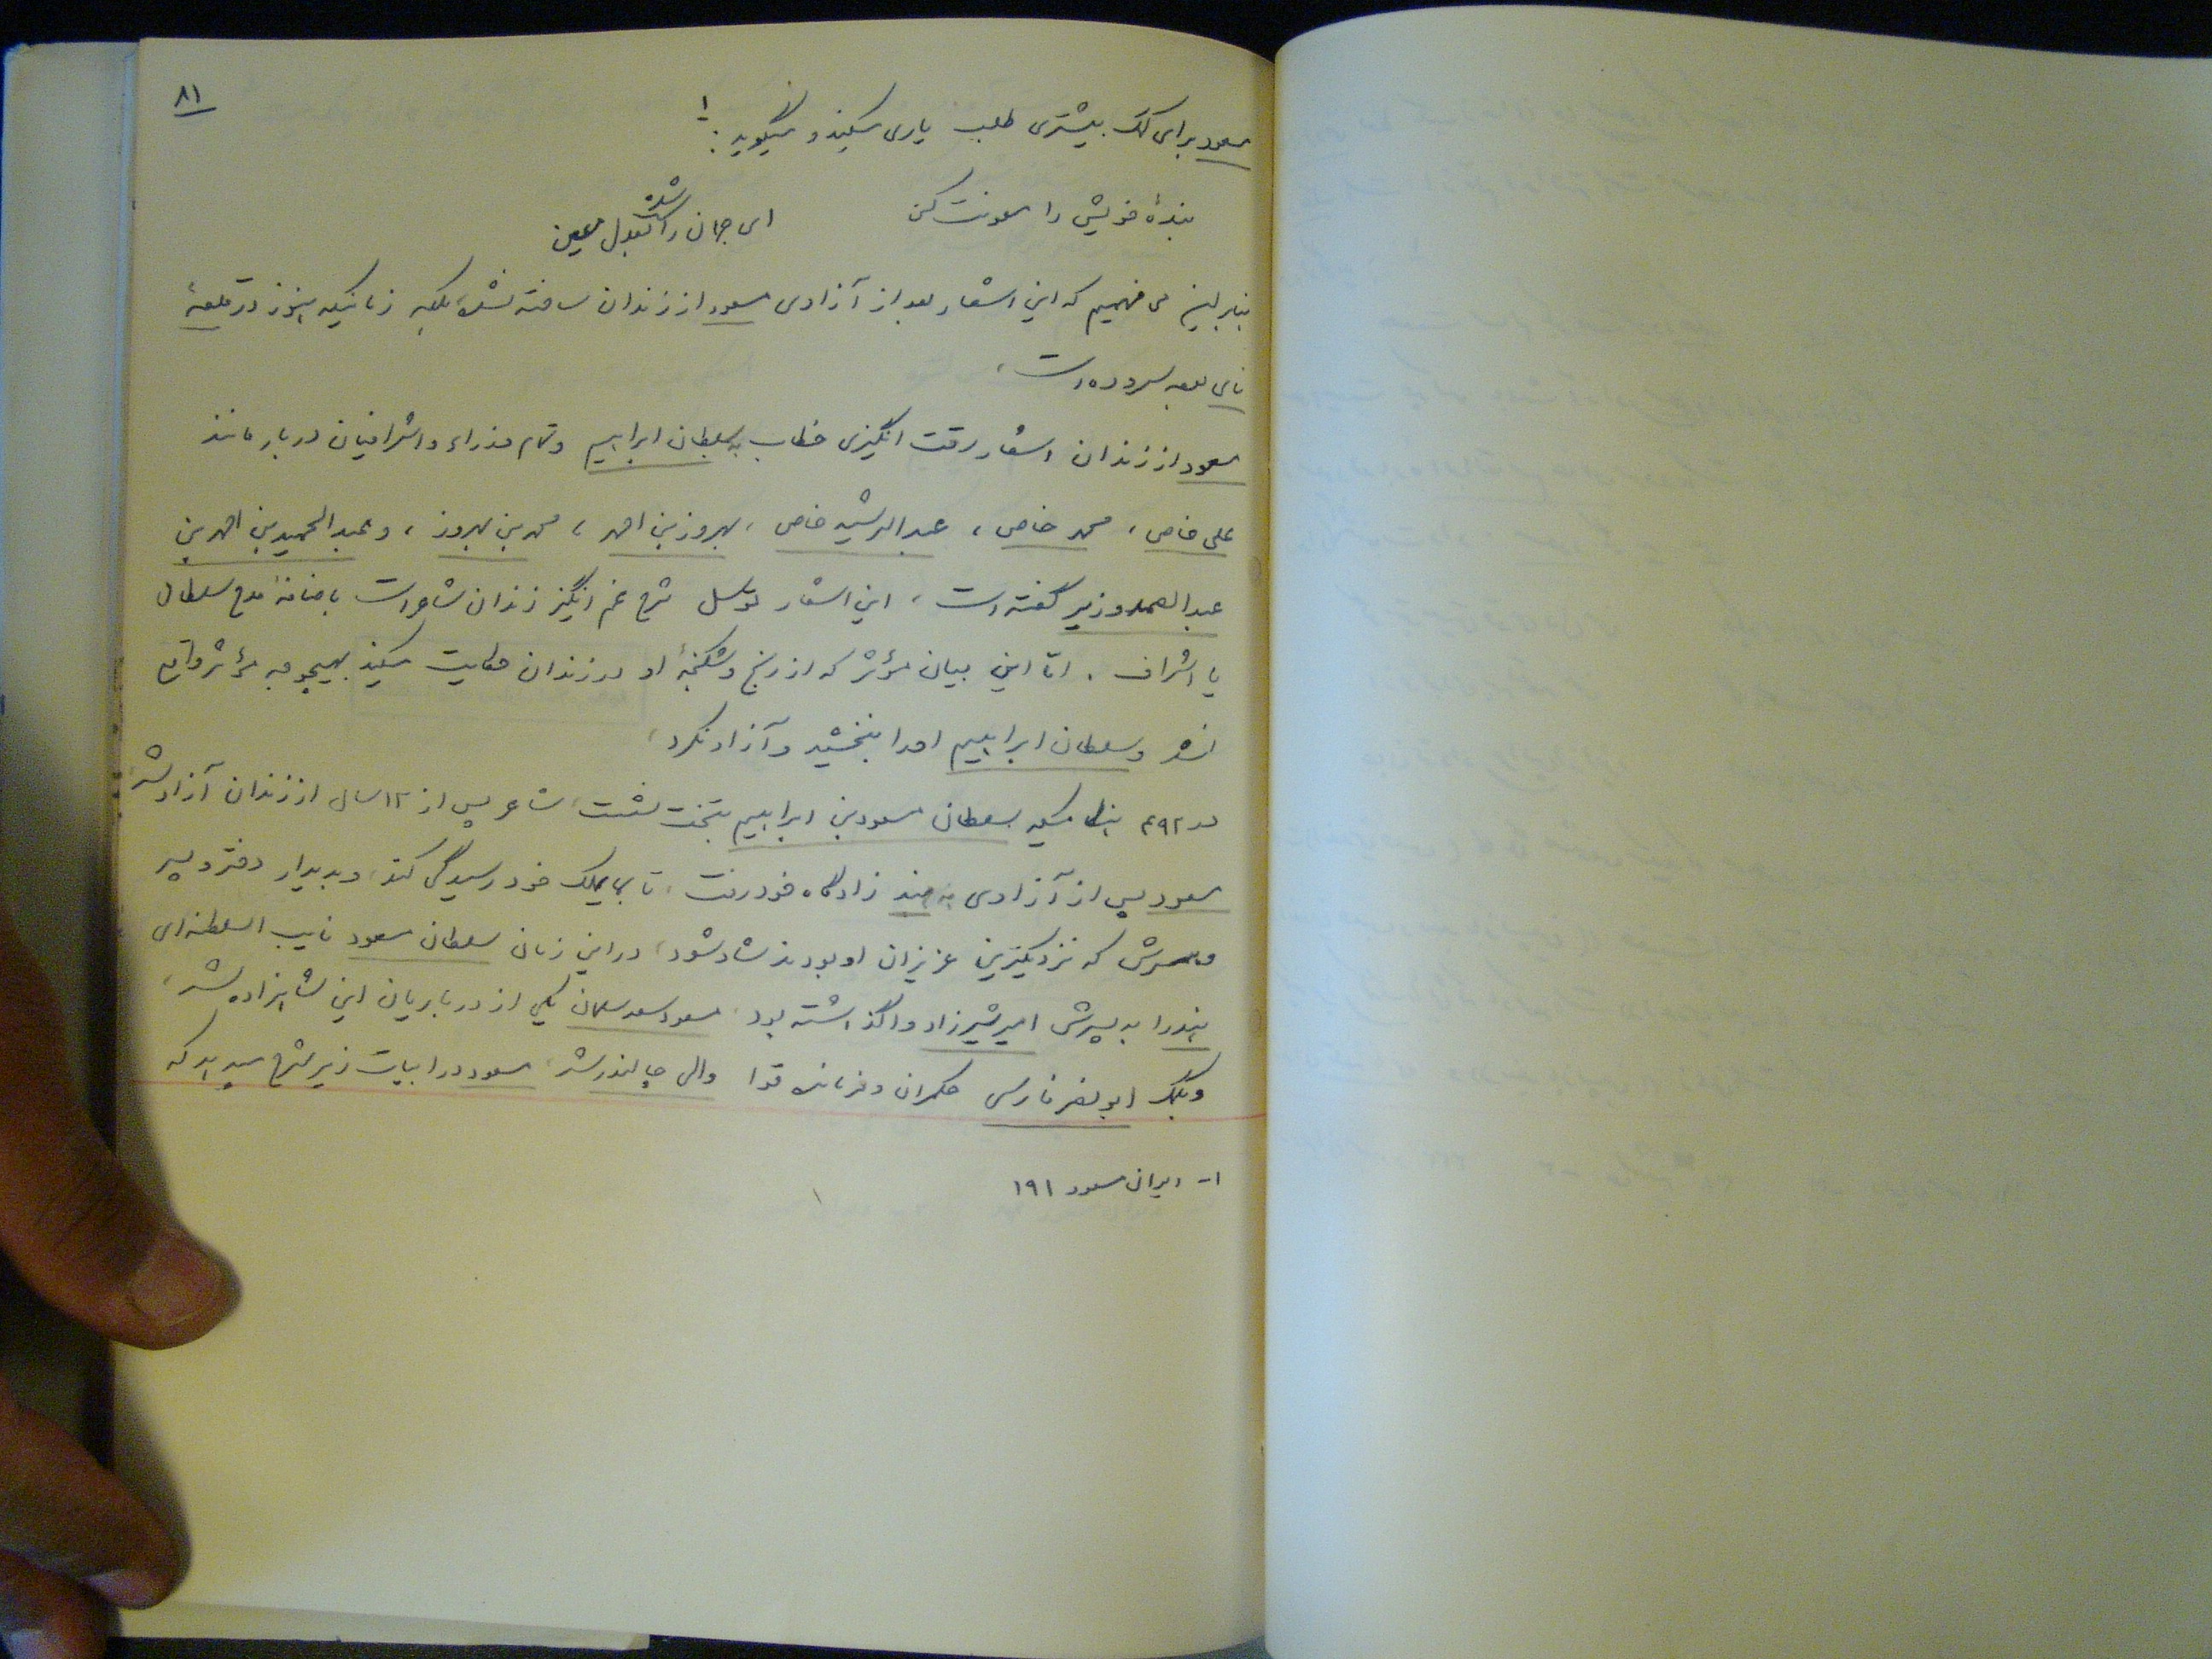 ۸۱
مسعود برای کمک بیشتری طلب یاری میکند و میگوید : ۱
بندهٔ خویش را معونت کن ای جهان را شده بعدل معین
بنابراین می فهمیم که این اشعار بعد از آزادی مسعود از زندان ساخته نشده، بلکه زمانیکه هنوز در قلعهٔ
نای بوده سروده است،
مسعود از زندان اشعار رقت انگیزی خطاب به سلطان ابراهیم و تمام وزراء و اشرافیان دربار مانند
علی خاص، محمد خاص، عبدالرشید خاص، بهروز بن احمد، محمد بن بهروز، و عبدالحمید بن احمد بن
عبدالصمد وزیر گفته است، این اشعار توسل شرح غم انگیز زندان شاعر است باضافهٔ مدح سلطان
یا اشراف. امّا این بیان مؤثر که از رنج و شکنجهٔ او در زندان حکایت میکند بهیچوجه مؤثر واقع
نشد و سلطان ابراهیم او را نبخشید و آزاد نکرد،
در ۴۹۲ هنگامیکه سلطان مسعود بن ابراهیم بتخت نشست، شاعر پس از ۱۲ سال از زندان آزاد شد،
مسعود پس از آزادی به هند زادگاه خود رفت، تا به املاک خود رسیدگی کند، و بدیدار دختر و پسر
و همسرش که نزدیکترین عزیزان او بودند شاد شود، در این زمان سلطان مسعود نایب السلطنه ای
هند را به پسرش امیر شیرزاد واگذاشته بود، مسعود سعد سلمان یکی از درباریان این شاهزاده شد،
و بکمک ابونصر فارسی حکمران و فرمانده قوا والی چالندر شد، مسعود در ابیات زیر شرح میدهد که
۱- دیوان مسعود ۱۹۱